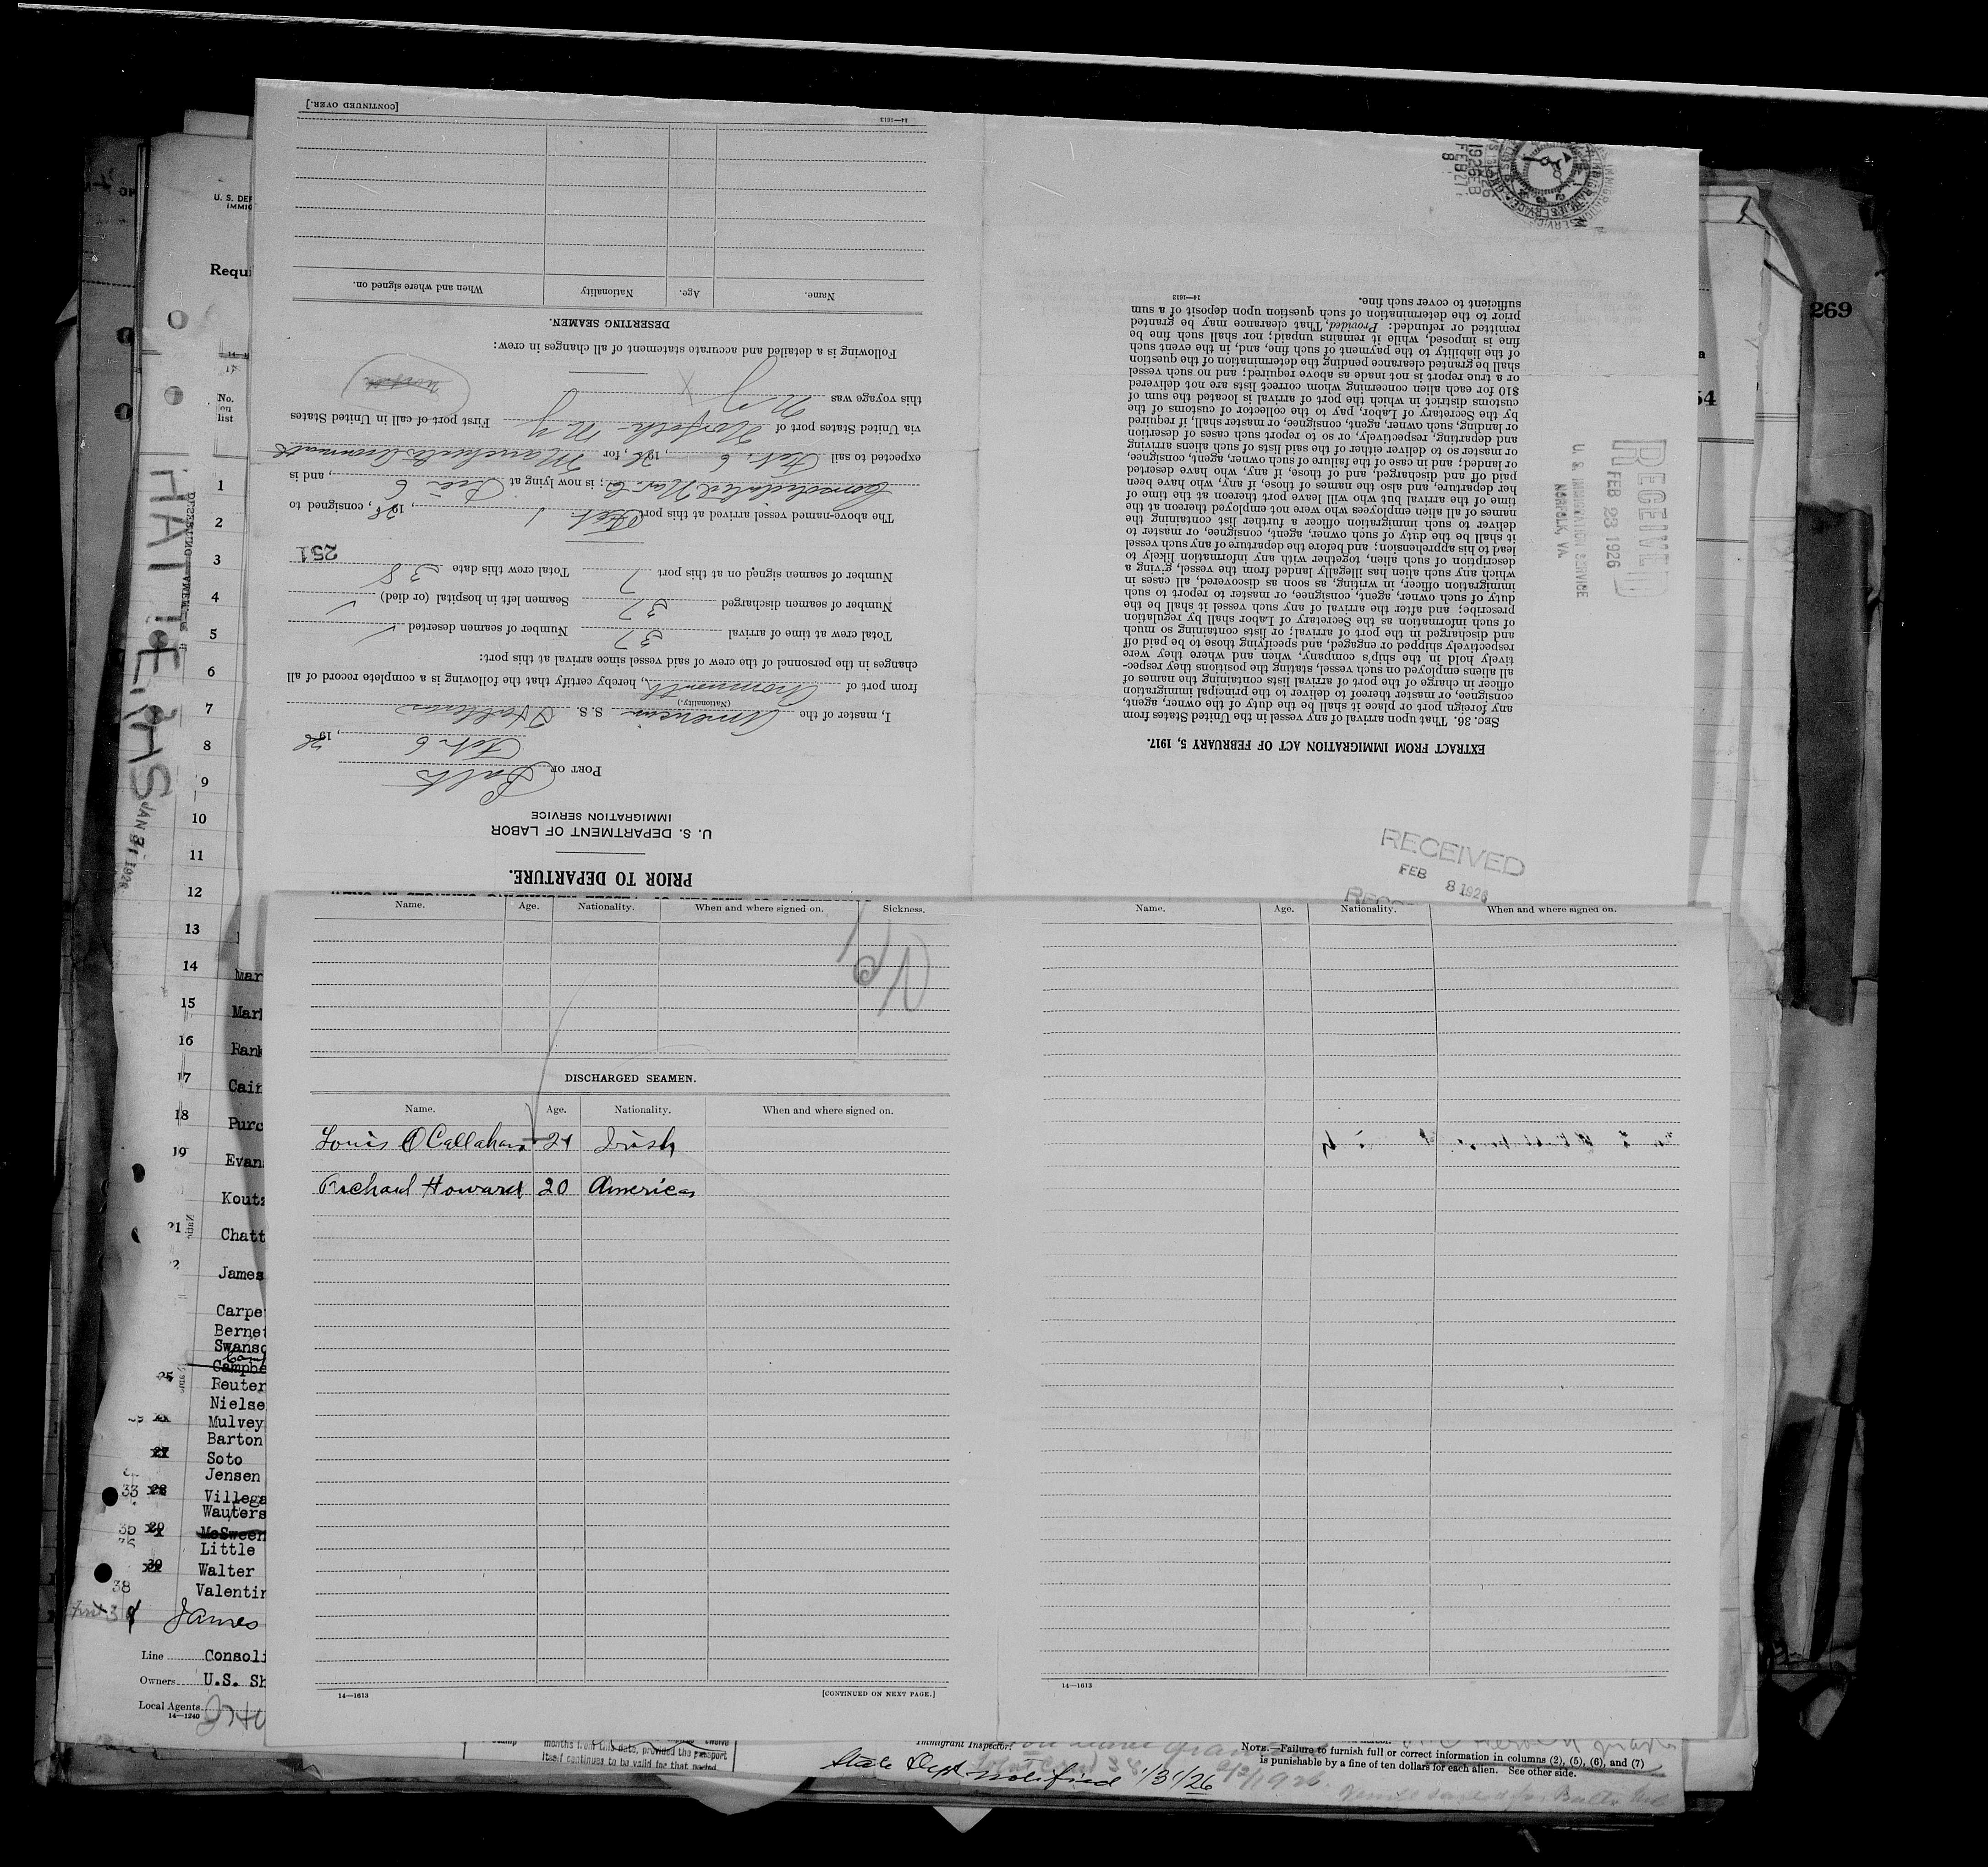 269
PRIOR TO DEPARTURE.
U. S. DEPARTMENT OF LABOR
IMMIGRATION SERVICE
PORT OF Balto
Feb. 6, 1926
I, master of the American S. S.
(Nationality.)
from port of, hereby certify that the following is a complete record of all
changes in the personnel of the crew of said vessel since arrival at this port:
Total crew at time of arrival 37 Number of seamen deserted ✓
Number of seamen discharged 37 Seamen left in hospital (or died) ✓
Number of seamen signed on at this port Total crew this date 38
251
The above-named vessel arrived at this port Feb. 1, 1926, consigned to
Consolidated Nav. Co; is now lying at Pier 6, and is
expected to sail Feb. 6, 1926, for Manchester
via United States port of Norfolk - N Y First port of call in United States
this voyage was N Y
Following is a detailed and accurate statement of all changes in crew:
DESERTING SEAMEN.
Name. Age. Nationality When and where signed on.
14—1613 [CONTINUED OVER.]
EXTRACT FROM IMMIGRATION ACT OF FEBRUARY 5, 1917.
SEC. 36. That upon arrival of any vessel in the United States from
any foreign port or place it shall be the duty of the owner, agent,
consignee, or master thereof to deliver to the principal immigration
officer in charge of the port of arrival lists containing the names of
all aliens employed on such vessel, stating the positions they respec-
tively hold in the ship's company, when and where they were
respectively shipped or engaged, and specifying those to be paid off
and discharged in the port of arrival; or lists containing so much
of such information as the Secretary of Labor shall by regulation
prescribe; and after the arrival of any such vessel it shall be the
duty of such owner, agent, consignee, or master to report to such
immigration officer, in writing, as soon as discovered, all cases in
which any such alien has illegally landed from the vessel, giving a
description of such alien, together with any information likely to
lead to his apprehension; and before the departure of any such vessel
it shall be the duty of such owner, agent, consignee, or master to
deliver to such immigration officer a further list containing the
names of all alien employees who were not employed thereon at the
time of the arrival but who will leave port thereon at the time of
her departure, and also the names of those, if any, who have been
paid off and discharged, and of those, if any, who have deserted
or landed; and in case of the failure of such owner, agent, consignee,
or master so to deliver either of the said lists of such aliens arriving
and departing, respectively, or so to report such cases of desertion
or landing, such owner, agent, consignee, or master shall, if required
by the Secretary of Labor, pay to the collector of customs of the
customs district in which the port of arrival is located the sum of
$10 for each alien concerning whom correct lists are not delivered
or a true report is not made as above required; and no such vessel
shall be granted clearance pending the determination of the question
of the liability to the payment of such fine, and, in the event such
fine is imposed, while it remains unpaid; nor shall such fine be
remitted or refunded: Provided, That clearance may be granted
prior to the determination of such question upon deposit of a sum
sufficient to cover such fine.
14—1613
RECEIVED
FEB 23 1926
U. S. IMMIGRATION SERVICE
NORFOLK, VA.
RECEIVED
FEB 8 1926
Name. Age. Nationality. When and where signed on. Sickness.
DISCHARGED SEAMEN.
Name. Age. Nationality. When and where signed on.
Louis O Callahan 24 Irish
Richard Howard 20 American
14—1613 [CONTINUED ON NEXT PAGE.]
Name. Age. Nationality. When and where signed on.
14—1613
U. S. DEP
IMMIG
Requi
No.
on
list
1
2
3
4
5
6
7
8
9
10
11
12
13
14 Mar
15 Mar
16 Rank
17 Cain
18 Purc
19 Evan
Kout
21 Chatt
James
Carpe
Bernet
Swanso
Campbe
25 Reuter
Nielse
Mulvey
Barton
27 Soto
Jensen
33 28 Villega
Wauters
35 29 McSween
Little
30 Walter
38 Valentin
James
Line Consoli
Owners U.S. Sh
Local Agents
14—1240
months from this date, provided the passport
itself continues to be valid for that period
Immigrant Inspector.
State Dept notified 1/31/26
NOTE.—Failure to furnish full or correct information in columns (2), (5), (6), and (7)
is punishable by a fine of ten dollars for each alien. See other side.